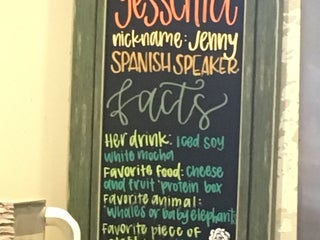 Jessenia
nickname: Jenny
SPANISH SPEAKER
facts
Her drink: Iced soy
white mocha
Favorite food: cheese
and fruit protein box
Favorite animal:
whales or baby elephants
Favorite piece of